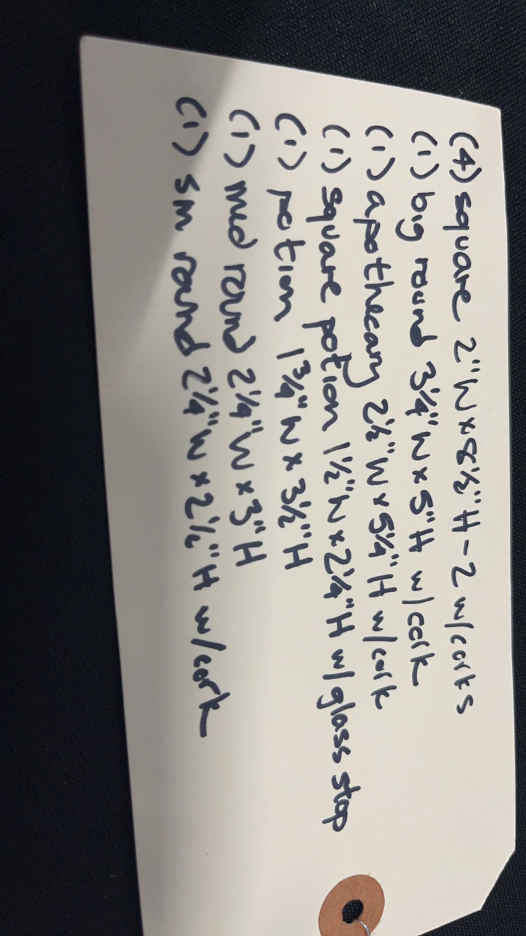 (4) square 2"W x 8½"H - 2 w/corks
(1) big round 3¼"W x 5"H w/cork
(1) apothecary 2½"W x 5¼"H w/cork
(1) square potion 1½"W x 2¼"H w/glass stop
(1) potion 1¾"W x 3½"H
(1) med round 2¼"W x 3"H
(1) sm round 2¼"W x 2½"H w/cork